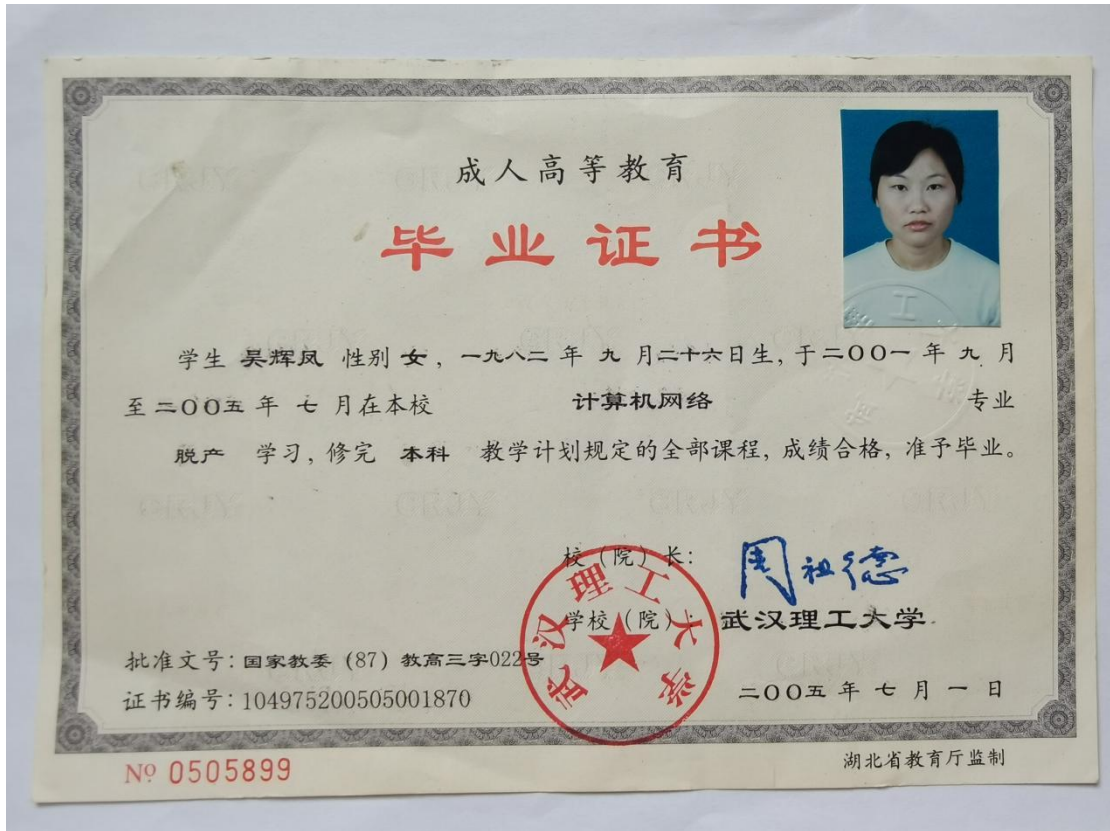 成人高等教育
毕业证书
学生 吴辉凤 性别 女，一九八二 年 九 月二十六日生，于二〇〇一 年 九 月
至二〇〇五 年 七 月在本校 计算机网络 专业
脱产 学习，修完 本科 教学计划规定的全部课程，成绩合格，准予毕业。
校（院）长：周祖德
学校（院）：武汉理工大学
武汉理工大学
批准文号：国家教委（87）教高三字022号
证书编号：104975200505001870
二〇〇五 年 七 月 一 日
№ 0505899
湖北省教育厅监制